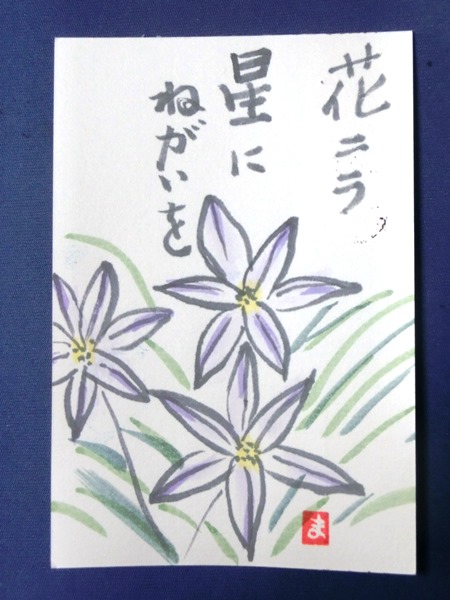 花ニラ
星に
ねがいを
ま